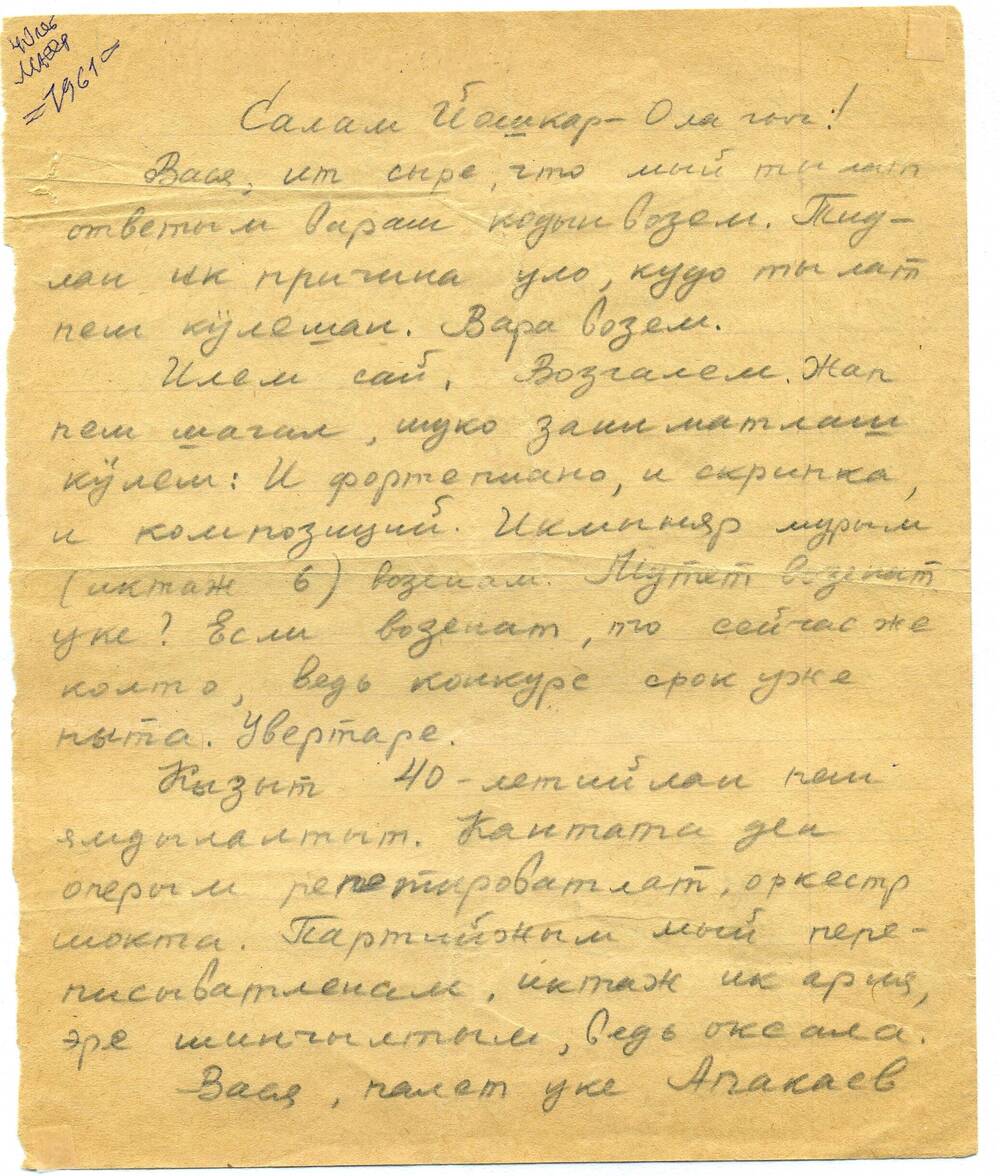 40 лет
МАССР
= 1961 =
Салам Йошкар-Ола гыч!
Вася, ит сыре, что мый тылат
ответым вараш кодын возем. Тид-
лан ик причина уло, кудо тылат
пеш кӱлешан. Вара возем.
Илем сай, Возгалем. Жап
пеш шагал, шуко заниматлаш
кӱлеш: И фортепиано, и скрипка,
и композиций. Икмыняр мурым
(иктаж 6) возенам. Шутет возенат
уке? Если возенат, то сейчас же
колто, ведь конкурс срок уже
пыта. Увертаре.
Кызыт 40-летийлан пеш
ямдылалтыт. Кантата ден
оперым репетироватлат, оркестр
шокта. Партийжым мый пере-
писыватленам, иктаж ик ария,
эре шинчылтым, ведь оксала.
Вася, палет уке Апакаев